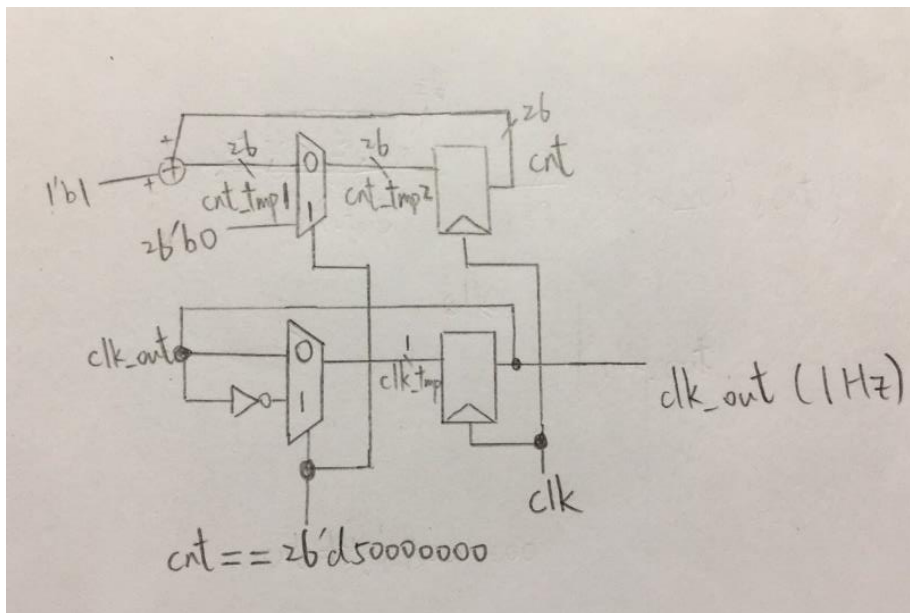 26
cnt
+
+
+
1'b1
26
cnt_tmp1
0
1
26
cnt_tmp2
26'b0
clk_out
0
1
1
clk_tmp
clk_out (1Hz)
clk
cnt == 26'd50000000